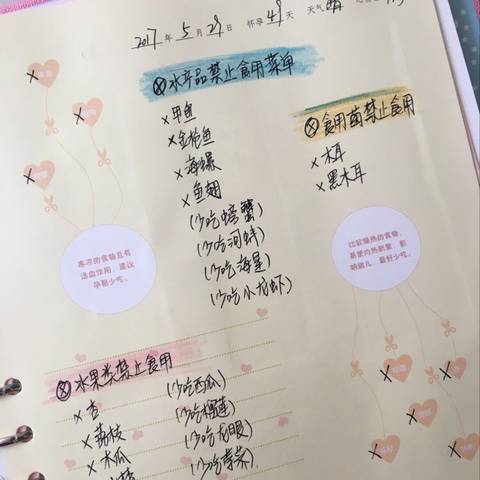 2017年5月29日 怀孕49天 天气晴
ⓧ水产品禁止食用菜单
×甲鱼
×金枪鱼
×海螺
×鱼翅
(少吃螃蟹)
(少吃河蚌)
(少吃海星)
(少吃小龙虾)
ⓧ食用菌禁止食用
×木耳
×黑木耳
寒凉的食物且有
活血作用，建议
孕期少吃。
比较燥热的食物，
易使内热郁聚，影
响胎儿，最好少吃。
ⓧ水果类禁止食用
×杏 (少吃西瓜)
×荔枝 (少吃榴莲)
×木瓜 (少吃龙眼)